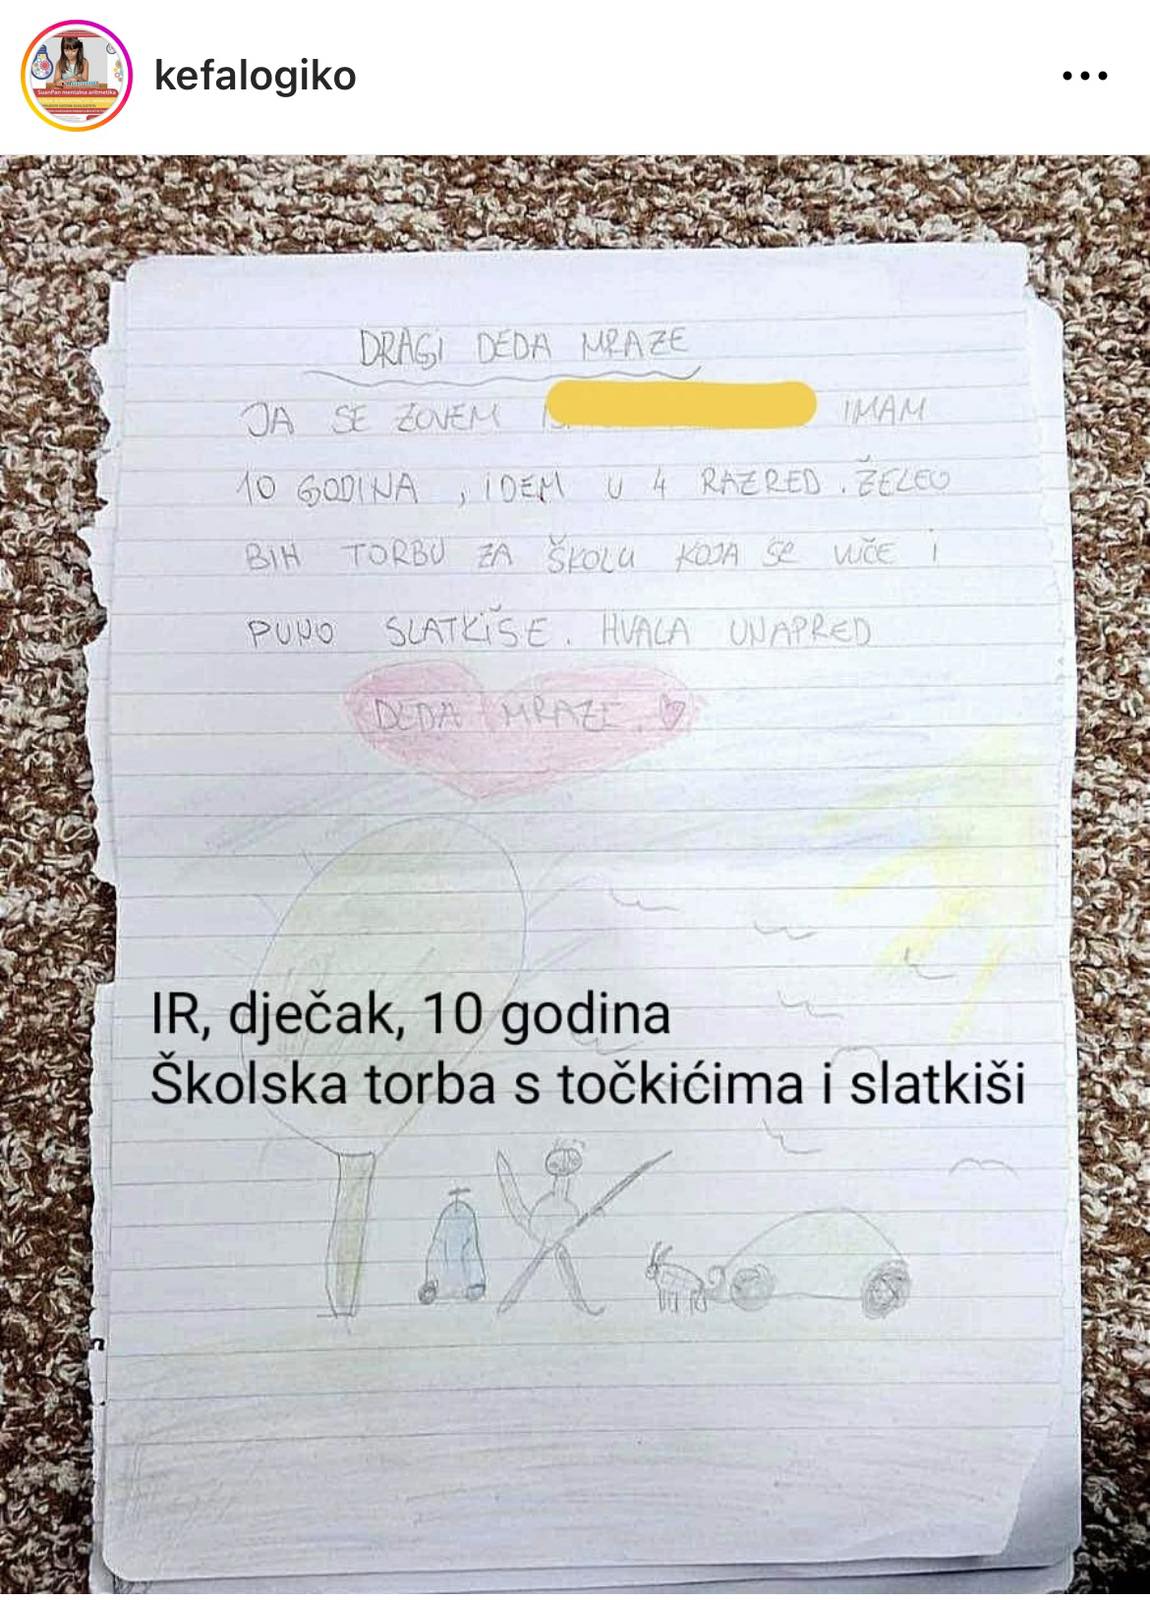 kefalogiko
SuanPan mentalna aritmetika
DRAGI DEDA MRAZE
JA SE ZOVEM IMAM
10 GODINA, IDEM U 4 RAZRED. ŽELEO
BIH TORBU ZA ŠKOLU KOJA SE VUČE I
PUNO SLATKIŠE. HVALA UNAPRED
DEDA MRAZE.
IR, dječak, 10 godina
Školska torba s točkićima i slatkiši